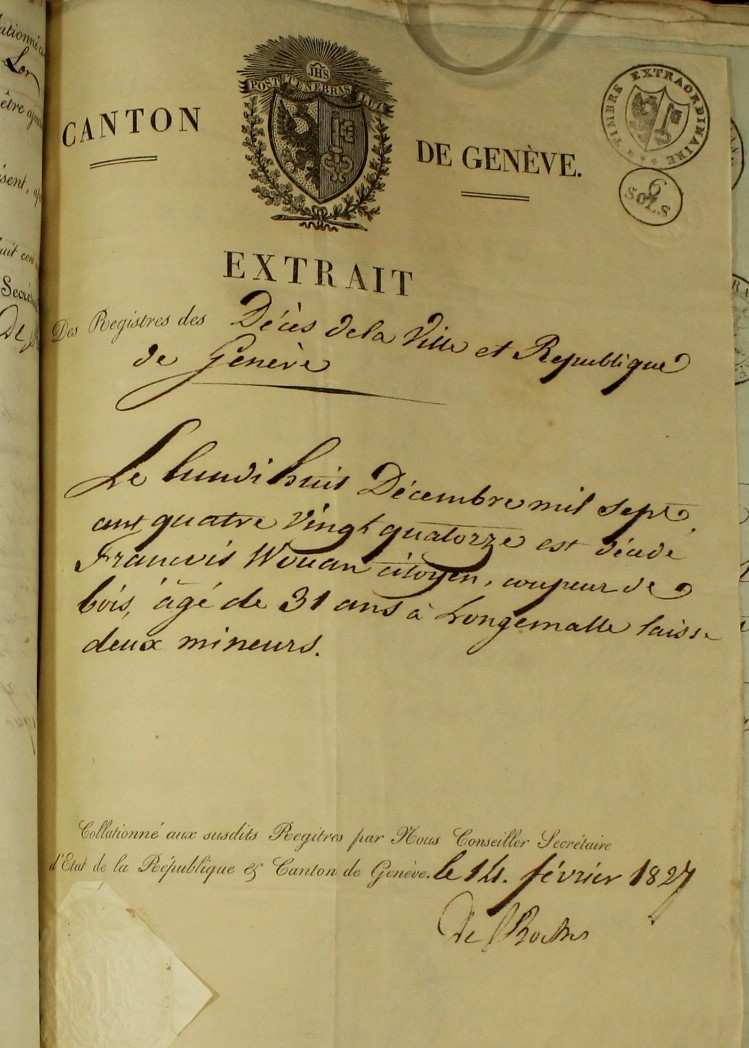 JHS
POST TENEBRAS LUX
CANTON DE GENÈVE.
TIMBRE EXTRAORDINAIRE
6
SOLS
EXTRAIT
Des Registres des Décès de la Ville et Republique
de Genève
Le lundi huit Décembre mil sept
cent quatre vingt quatorze est décédé
François Wouan citoyen, coupeur de
bois, âgé de 31 ans à Longemalle laisse
deux mineurs.
Collationné aux susdits Regitres par Nous Conseiller Secrétaire
d'Etat de la République & Canton de Genève. le 14. février 1827
De Roches